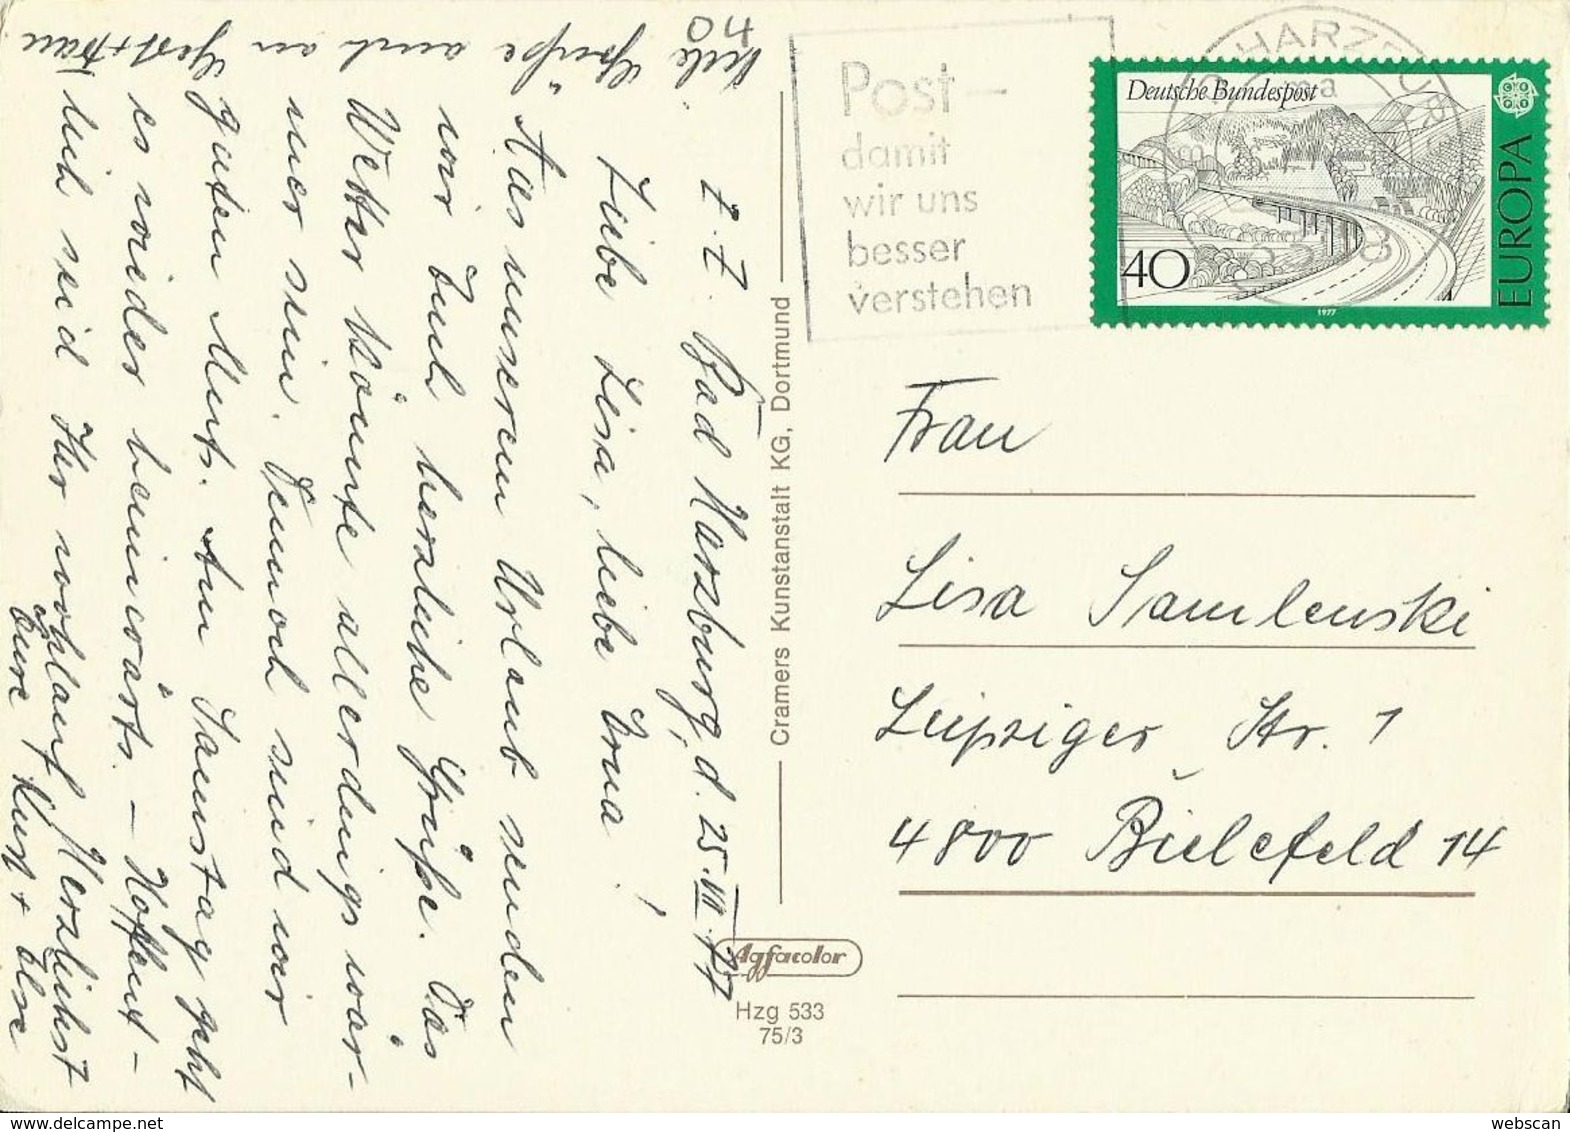 Viele Grüße auch an Gert + Frau
40
z. Z. Bad Harzburg, d. 25. VII. 77
Liebe Lisa, liebe Erna!
Aus unserem Urlaub senden
wir Euch herzliche Grüße. Das
Wetter könnte allerdings wär-
mer sein. Dennoch sind wir
guten Muts. Am Samstag geht
es wieder heimwärts. – Hoffent-
lich seid Ihr wohlauf. Herzlichst
Eure Kurt + Else
Cramers Kunstanstalt KG, Dortmund
Agfacolor
Hzg 533
75/3
Post –
damit
wir uns
besser
verstehen
HARZBUR
Deutsche Bundespost
40
EUROPA
1977
Frau
Lisa Samlenski
Leipziger Str. 1
4800 Bielefeld 14
webscan